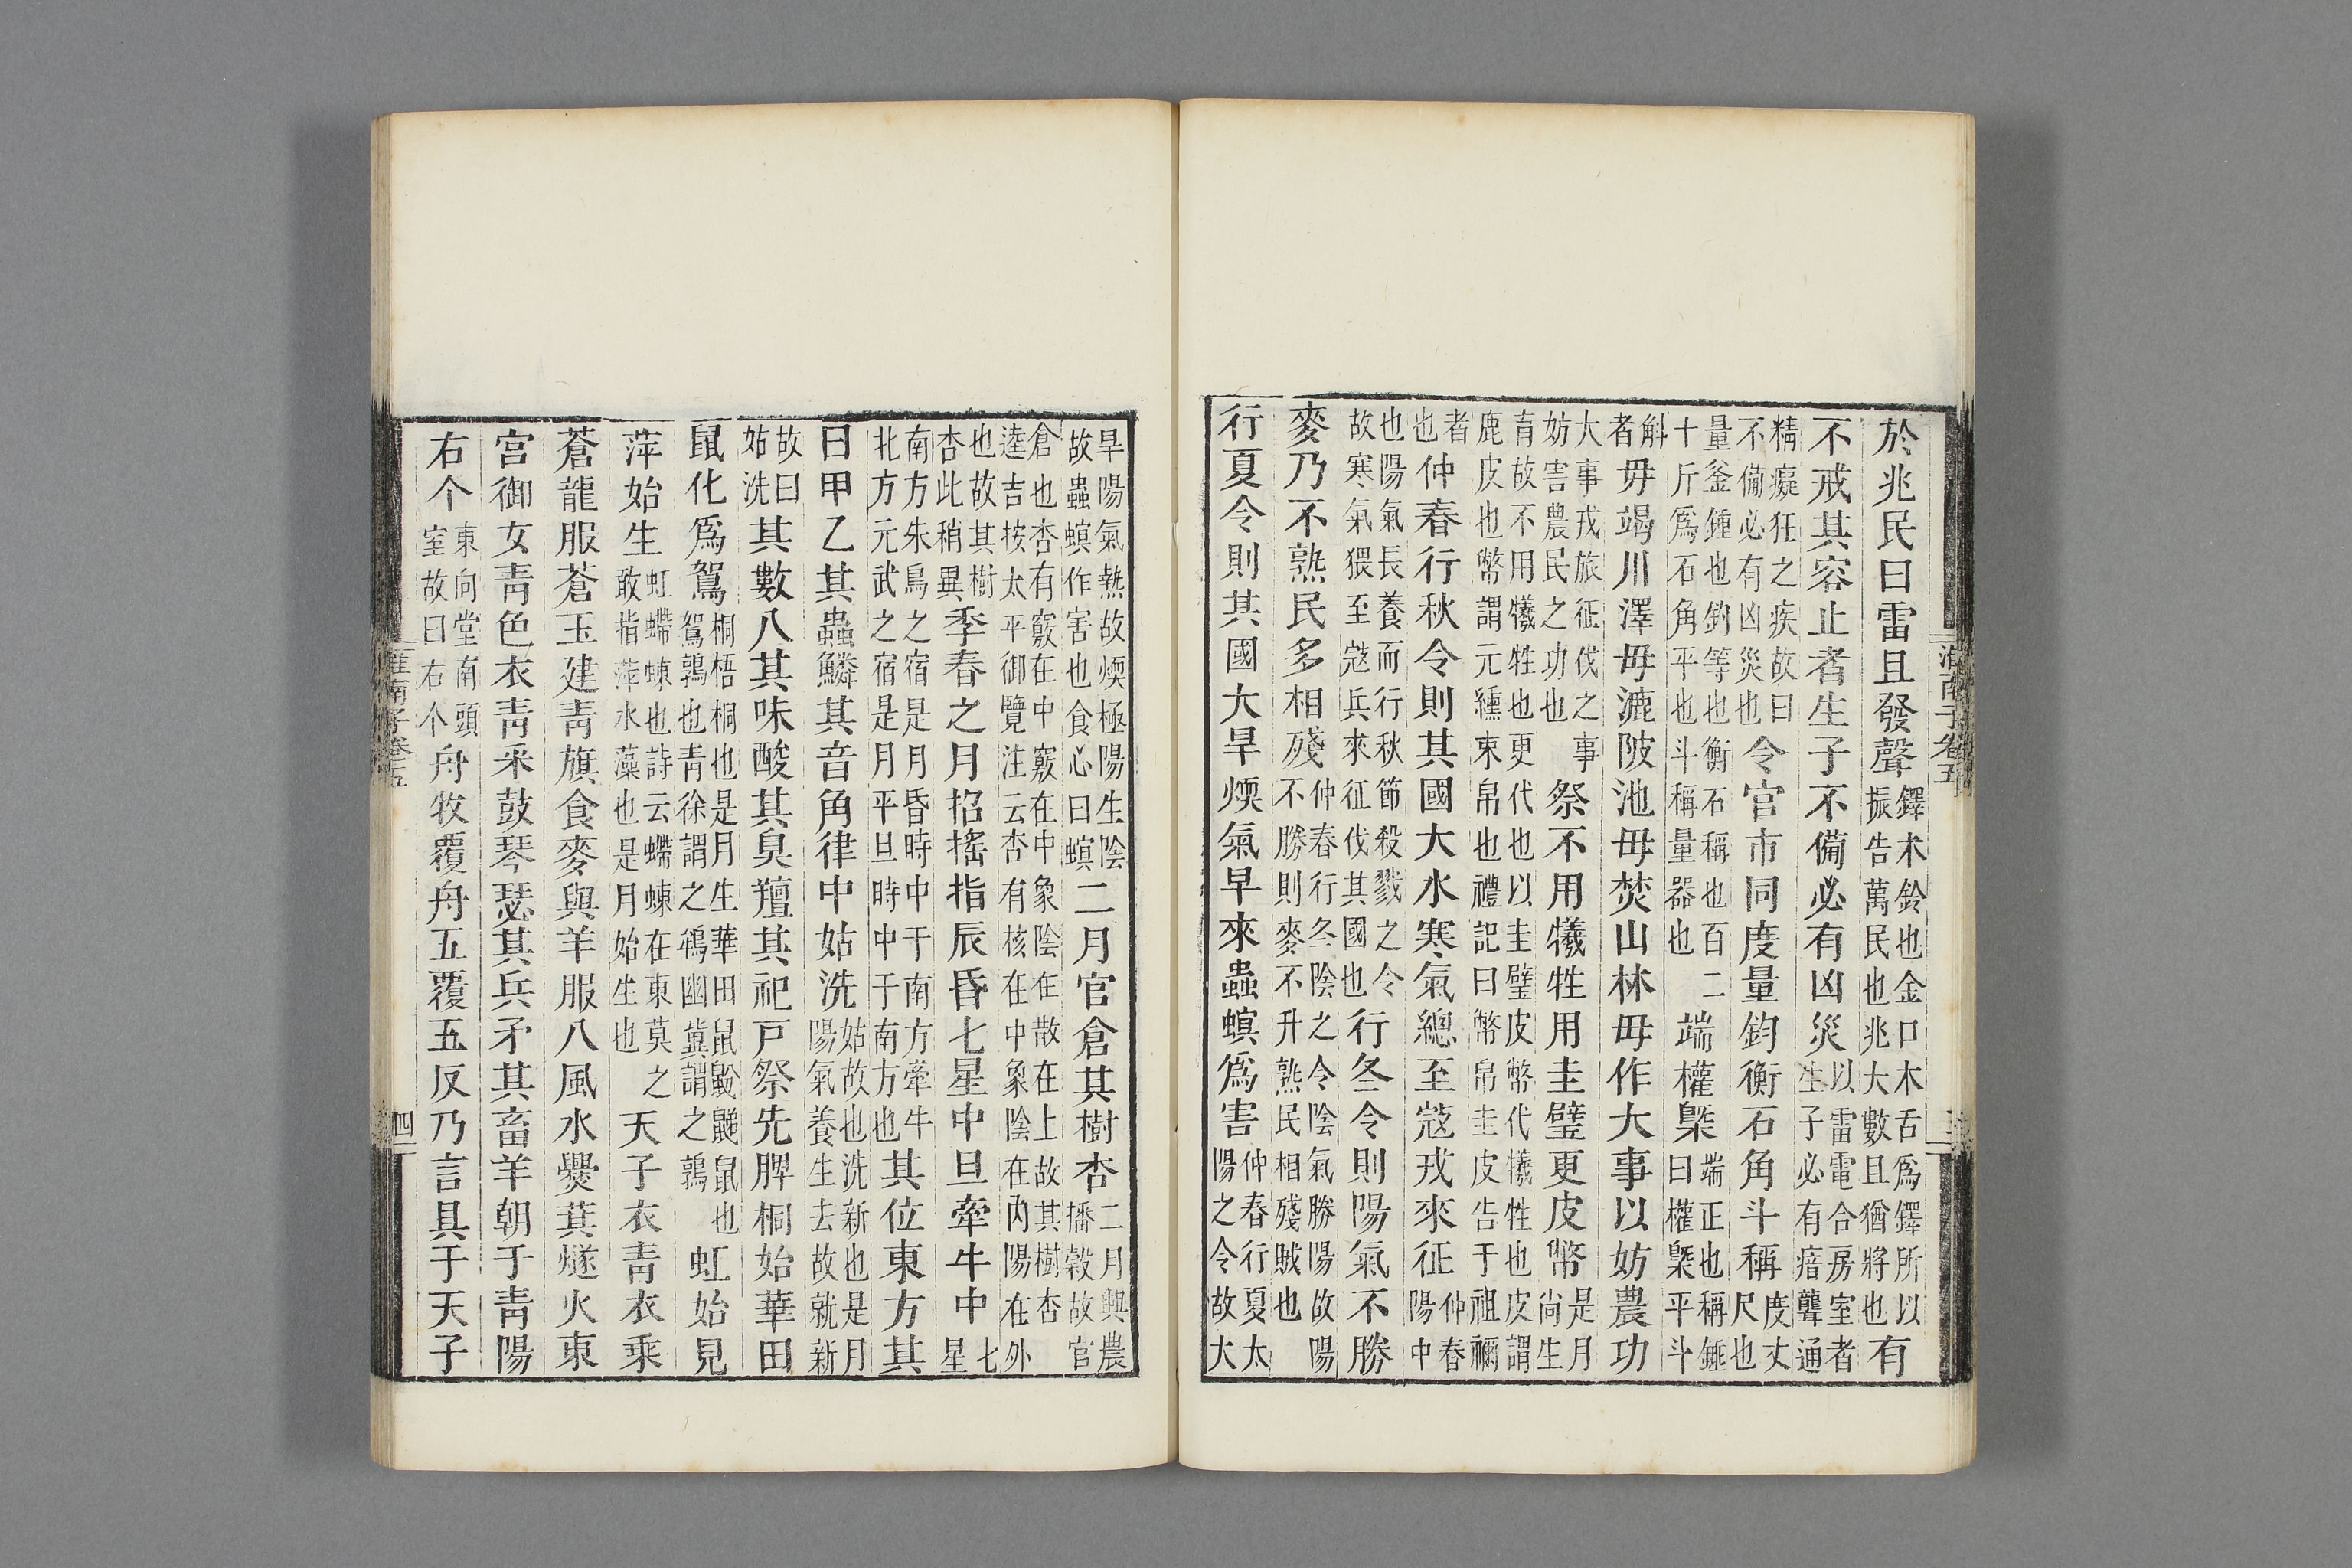 於兆民曰雷且發聲鐸木鈴也金口木舌爲鐸所以振告萬民也兆大數且猶將也有
不戒其容止者生子不備必有凶災以雷電合房室者生子必有瘖聾通
精癡狂之疾故曰不備必有凶災也令官市同度量鈞衡石角斗稱度丈尺也
量釜鍾也鈞等也衡石稱也百二十斤爲石角平也斗稱量器也端權槩端正也稱錘曰權槩平斗
斛者毋竭川澤毋漉陂池毋焚山林毋作大事以妨農功
大事戎旅征伐之事妨害農民之功也祭不用犧牲用圭璧更皮幣是月尚生
育故不用犧牲也更代也以圭璧皮幣代犧牲也皮謂鹿皮也幣謂元纁束帛也禮記曰幣帛圭皮告于祖禰
者也仲春行秋令則其國大水寒氣總至寇戎來征仲春陽中
也陽氣長養而行秋節殺戮之令故寒氣猥至寇兵來征伐其國也行冬令則陽氣不勝
麥乃不熟民多相殘仲春行冬陰之令陰氣勝陽故陽不勝則麥不升熟民相殘賊也
行夏令則其國大旱煗氣早來蟲螟爲害仲春行夏太陽之令故大
旱陽氣熱故煗極陽生陰故蟲螟作害也食心曰螟二月官倉其樹杏二月興農播穀故官
倉也杏有竅在中竅在中象陰在散在上故其樹杏逵吉按太平御覽注云杏有核在中象陰在內陽在外
也故其樹杏此稍異季春之月招搖指辰昏七星中旦牽牛中七星
南方朱鳥之宿是月昏時中于南方牽牛北方元武之宿是月平旦時中于南方也其位東方其
日甲乙其蟲鱗其音角律中姑洗姑故也洗新也是月陽氣養生去故就新
故曰姑洗其數八其味酸其臭羶其祀戸祭先脾桐始華田
鼠化爲鴽桐梧桐也是月生華田鼠鼢鼶鼠也鴽鶉也青徐謂之鴾幽冀謂之鶉虹始見
萍始生虹螮蝀也詩云螮蝀在東莫之敢指萍水藻也是月始生也天子衣青衣乘
蒼龍服蒼玉建青旗食麥與羊服八風水爨萁燧火東
宮御女青色衣青采鼓琴瑟其兵矛其畜羊朝于青陽
右个東向堂南頭室故曰右个舟牧覆舟五覆五反乃言具于天子
淮南子卷五
四